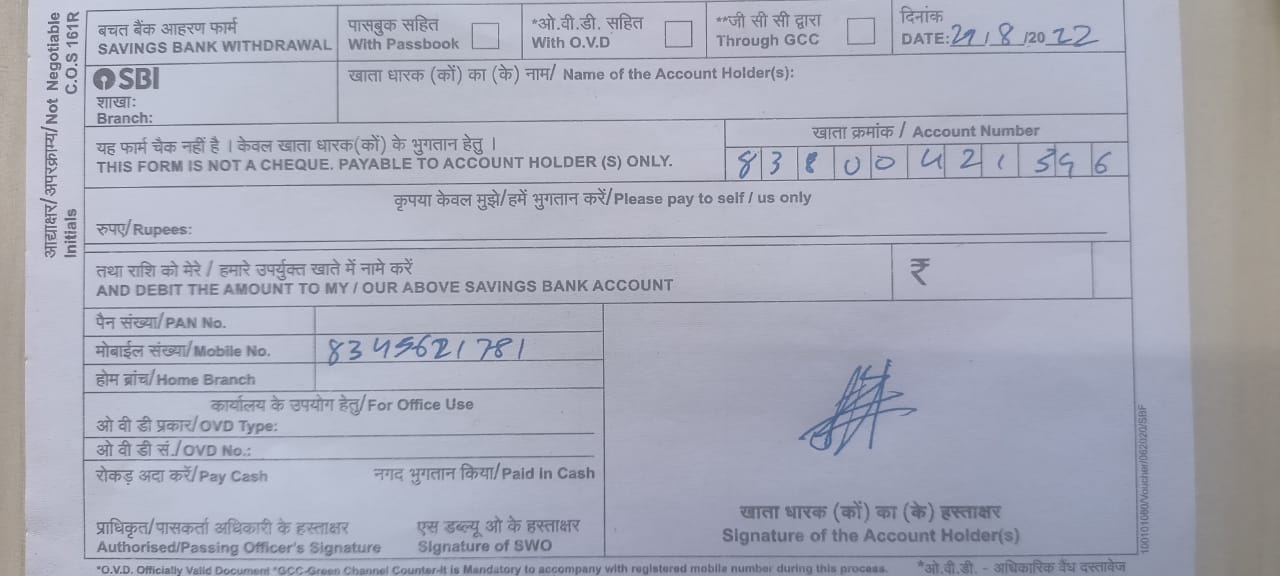 आद्याक्षर/अपरक्राम्य/Not Negotiable
Initials C.O.S 161R
बचत बैंक आहरण फार्म
SAVINGS BANK WITHDRAWAL
पासबुक सहित
With Passbook
*ओ.वी.डी. सहित
With O.V.D
**जी सी सी द्वारा
Through GCC
दिनांक
DATE: 29/8/2022
SBI
शाखा:
Branch:
खाता धारक (कों) का (के) नाम/ Name of the Account Holder(s):
यह फार्म चैक नहीं है । केवल खाता धारक(कों) के भुगतान हेतु ।
THIS FORM IS NOT A CHEQUE. PAYABLE TO ACCOUNT HOLDER (S) ONLY.
खाता क्रमांक / Account Number
83800421396
कृपया केवल मुझे/हमें भुगतान करें/Please pay to self / us only
रुपए/Rupees:
तथा राशि को मेरे / हमारे उपर्युक्त खाते में नामे करें
AND DEBIT THE AMOUNT TO MY / OUR ABOVE SAVINGS BANK ACCOUNT
₹
पैन संख्या/PAN No.
मोबाईल संख्या/Mobile No. 8345621781
होम ब्रांच/Home Branch
कार्यालय के उपयोग हेतु/For Office Use
ओ वी डी प्रकार/OVD Type:
ओ वी डी सं./OVD No.:
रोकड़ अदा करें/Pay Cash नगद भुगतान किया/Paid in Cash
प्राधिकृत/पासकर्ता अधिकारी के हस्ताक्षर एस डब्ल्यू ओ के हस्ताक्षर
Authorised/Passing Officer's Signature Signature of SWO
खाता धारक (कों) का (के) हस्ताक्षर
Signature of the Account Holder(s)
100101080/Voucher/062020/SBF
*O.V.D. Officially Valid Document *GCC-Green Channel Counter-It is Mandatory to accompany with registered mobile number during this process. *ओ.वी.डी. - अधिकारिक वैध दस्तावेज